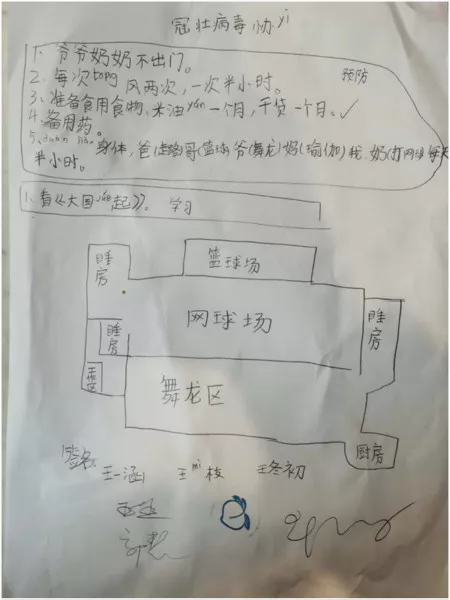 冠壮病毒协yi
1、爷爷奶奶不出门。
2、每次tong风两次,一次半小时。
预防
3、准备食用食物、米油yán一个月,干货一个月。✓
4、备用药。
5、duàn liàn身体,爸(跑)哥(篮球)爷(舞龙)妈(瑜加)我、奶(打网球)每天
半小时。
1、看《大国jué起》。 学习
睡房
篮球场
网球场
睡房
睡房
舞龙区
厨房
签名
王一涵
王 枝
王冬初